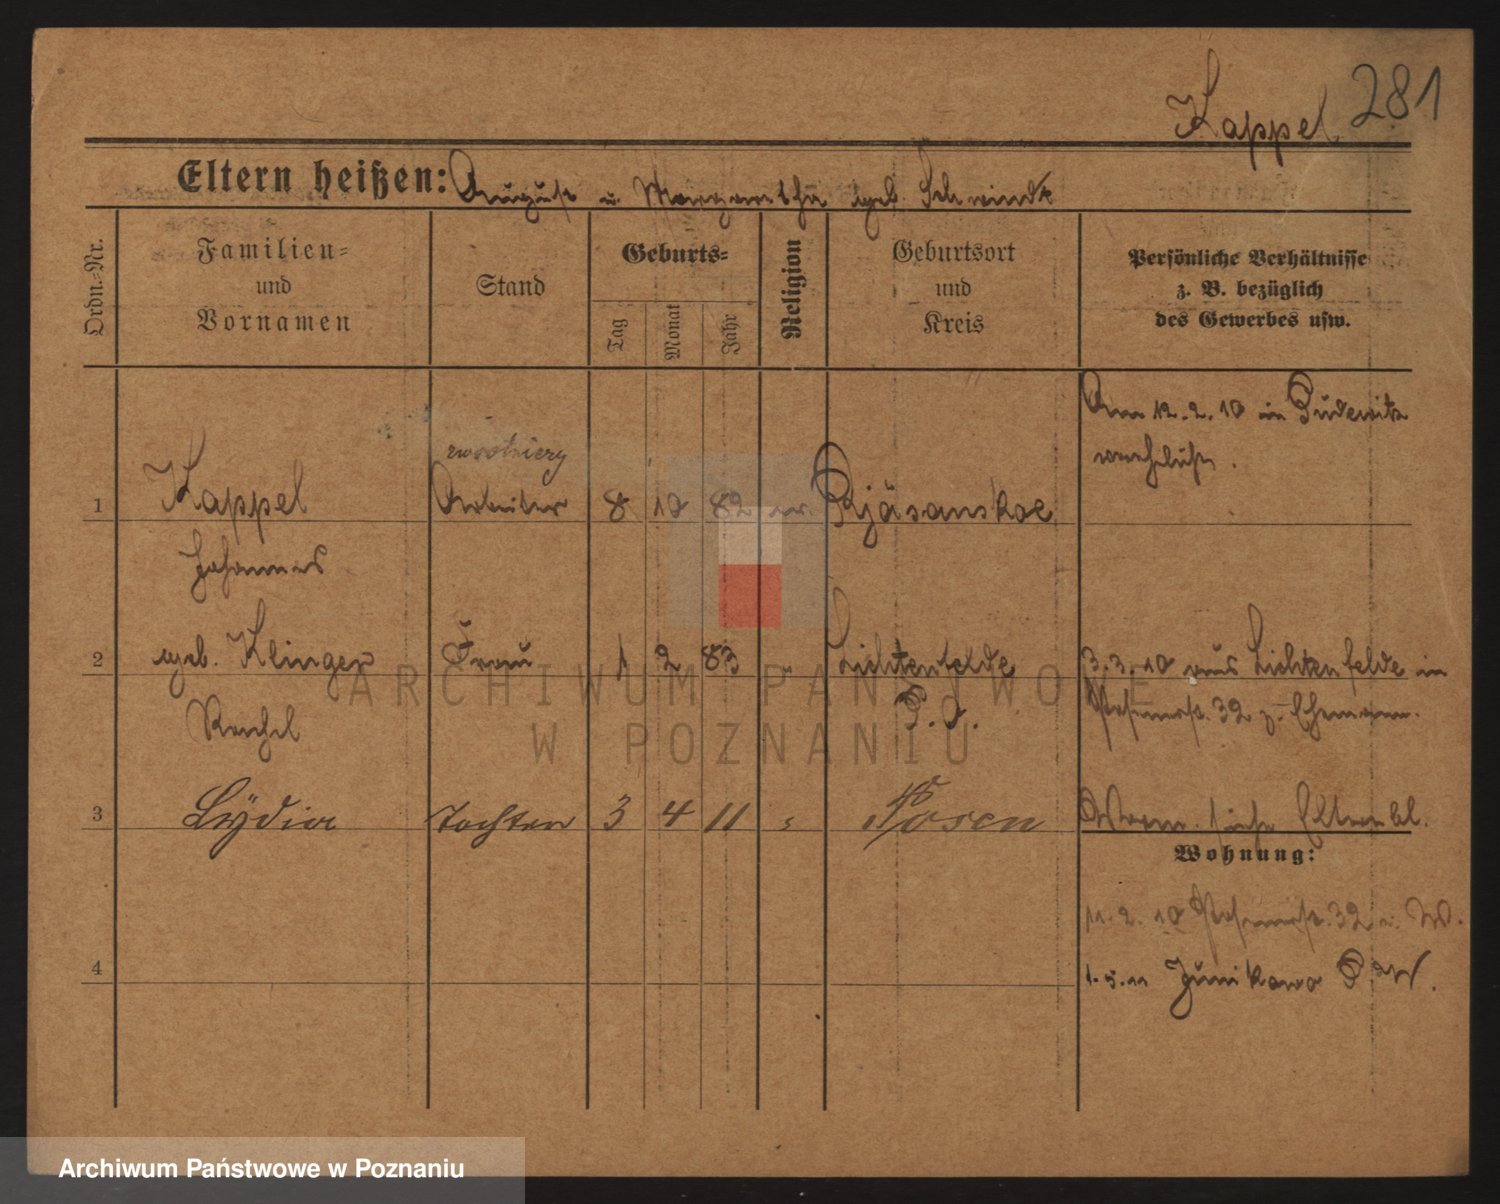 Kappel 281
Eltern heißen: August u. Margaretha geb. Schwindt
Ordn.-Nr.
Familien-
und
Vornamen
Stand
Geburts-
Tag
Monat
Jahr
Religion
Geburtsort
und
Kreis
Persönliche Verhältnisse
z. B. bezüglich
des Gewerbes usw.
Am 12.2.10 in Pudewitz
1 Kappel Arbeiter 8 10 82 ev. Rjäsanskoe
Johannes
2 geb. Klinger Frau 1 2 83 " Lichtenfelde 3.3.10 aus Lichtenfelde in
P. O. 32 z. Ehemann.
3 Lydia Tochter 3 4 11 " Posen siehe
Wohnung:
11.2.10 32 W.
4 1.5.11 Junikowo P W.
ARCHIWUM PAŃSTWOWE
W POZNANIU
Archiwum Państwowe w Poznaniu